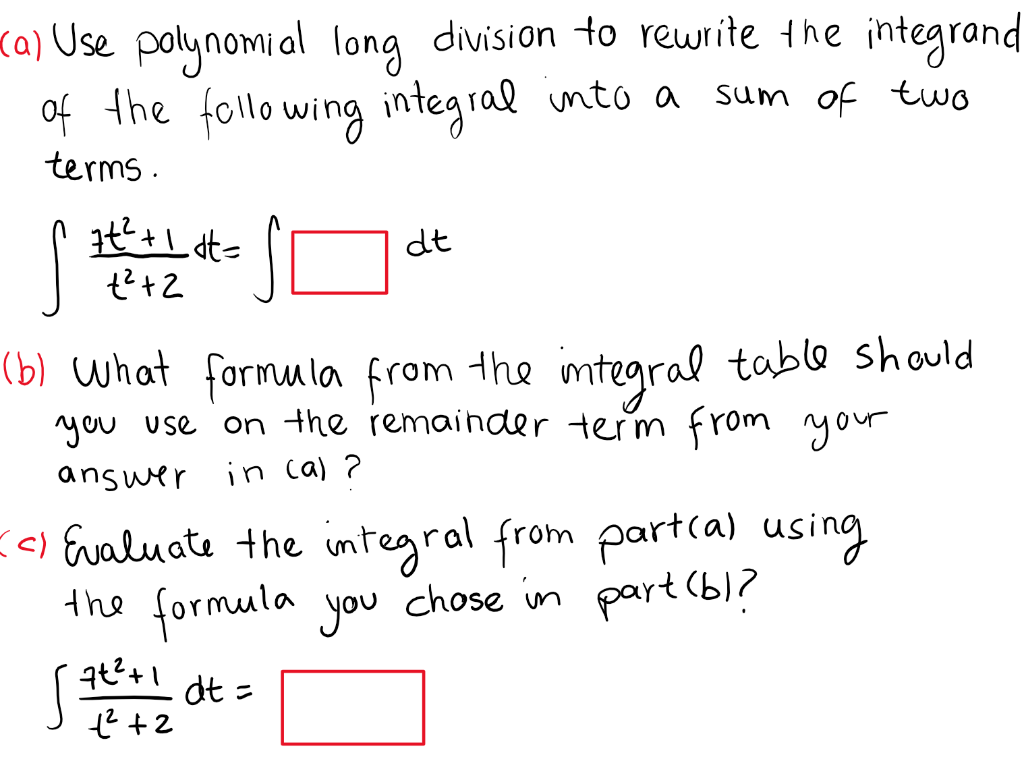 (a) Use polynomial long division to rewrite the integrand
of the following integral into a sum of two
terms.
∫ (7t²+1)/(t²+2) dt = ∫ dt
(b) What formula from the integral table should
you use on the remainder term from your
answer in (a)?
(c) Evaluate the integral from part(a) using
the formula you chose in part(b)?
∫ (7t²+1)/(t²+2) dt =